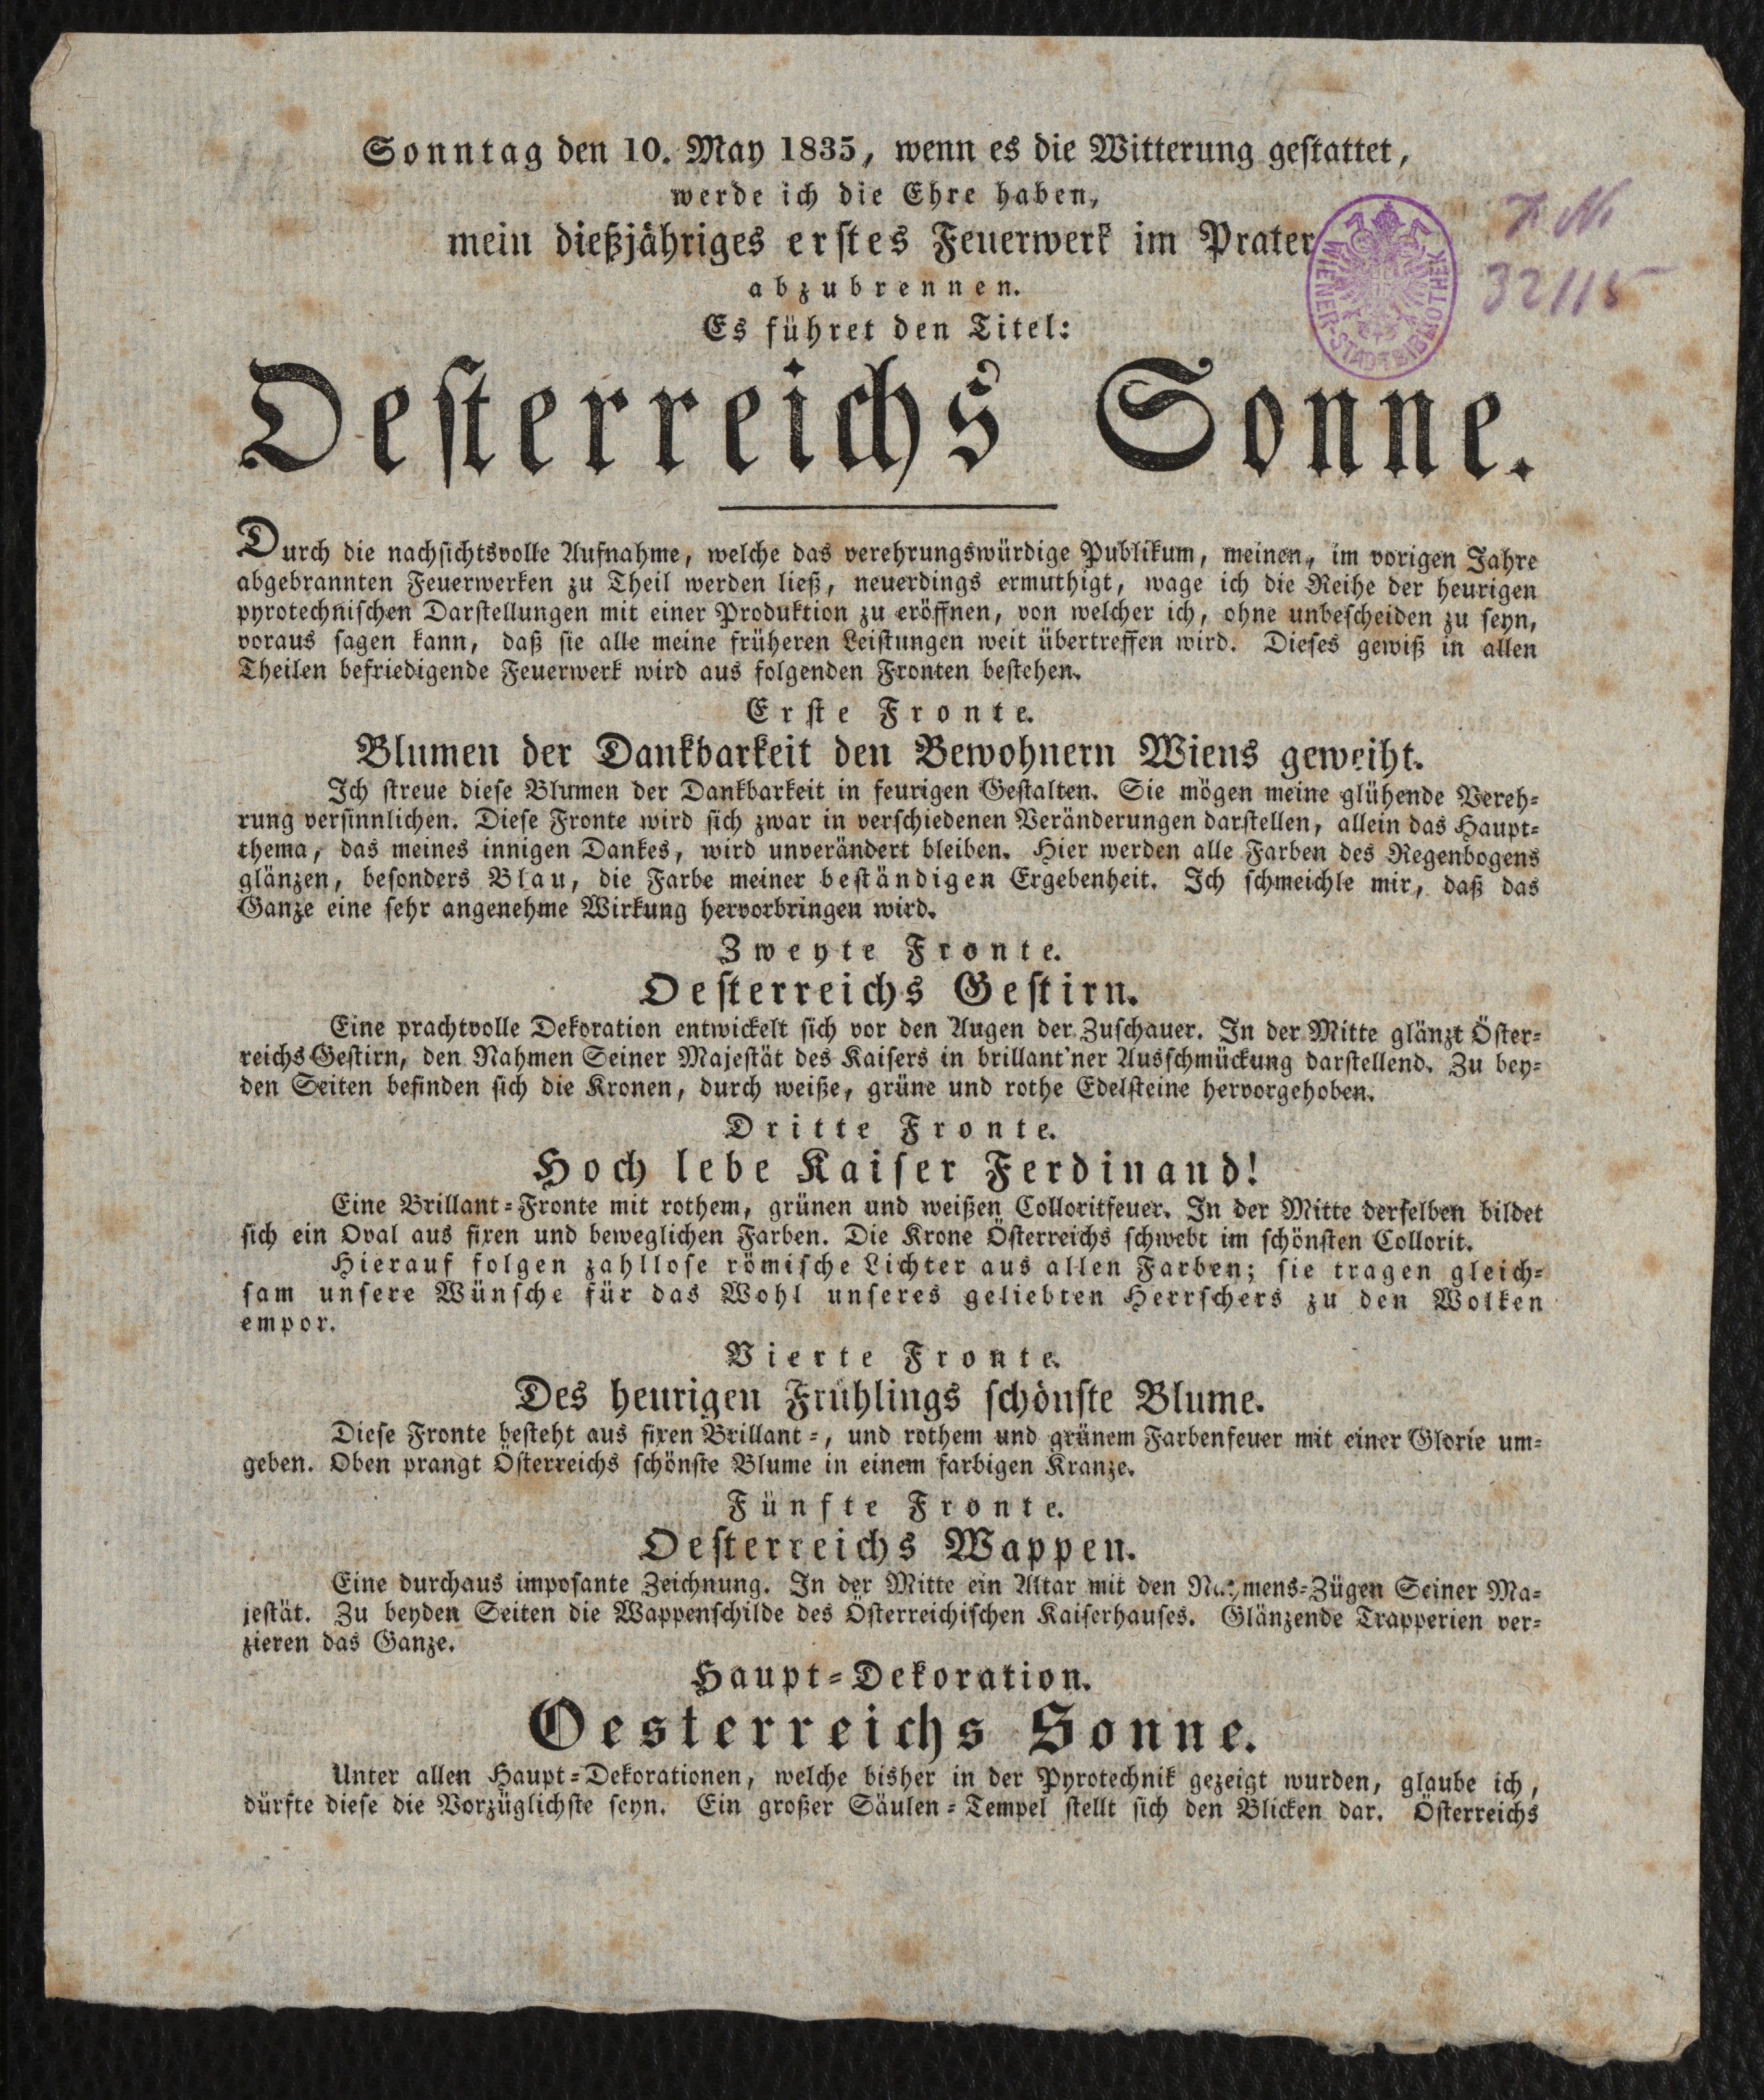 Sonntag den 10. May 1835, wenn es die Witterung gestattet,
werde ich die Ehre haben,
mein dießjähriges erstes Feuerwerk im Prater
abzubrennen.
Es führet den Titel:
Oesterreichs Sonne.
WIENER-STADTBIBLIOTHEK
32115
Durch die nachsichtsvolle Aufnahme, welche das verehrungswürdige Publikum, meinen, im vorigen Jahre
abgebrannten Feuerwerken zu Theil werden ließ, neuerdings ermuthigt, wage ich die Reihe der heurigen
pyrotechnischen Darstellungen mit einer Produktion zu eröffnen, von welcher ich, ohne unbescheiden zu seyn,
voraus sagen kann, daß sie alle meine früheren Leistungen weit übertreffen wird. Dieses gewiß in allen
Theilen befriedigende Feuerwerk wird aus folgenden Fronten bestehen.
Erste Fronte.
Blumen der Dankbarkeit den Bewohnern Wiens geweiht.
Ich streue diese Blumen der Dankbarkeit in feurigen Gestalten. Sie mögen meine glühende Vereh-
rung versinnlichen. Diese Fronte wird sich zwar in verschiedenen Veränderungen darstellen, allein das Haupt-
thema, das meines innigen Dankes, wird unverändert bleiben. Hier werden alle Farben des Regenbogens
glänzen, besonders Blau, die Farbe meiner beständigen Ergebenheit. Ich schmeichle mir, daß das
Ganze eine sehr angenehme Wirkung hervorbringen wird.
Zweyte Fronte.
Oesterreichs Gestirn.
Eine prachtvolle Dekoration entwickelt sich vor den Augen der Zuschauer. In der Mitte glänzt Öster-
reichs Gestirn, den Nahmen Seiner Majestät des Kaisers in brillant'ner Ausschmückung darstellend. Zu bey-
den Seiten befinden sich die Kronen, durch weiße, grüne und rothe Edelsteine hervorgehoben.
Dritte Fronte.
Hoch lebe Kaiser Ferdinand!
Eine Brillant-Fronte mit rothem, grünen und weißen Colloritfeuer. In der Mitte derselben bildet
sich ein Oval aus fixen und beweglichen Farben. Die Krone Österreichs schwebt im schönsten Collorit.
Hierauf folgen zahllose römische Lichter aus allen Farben; sie tragen gleich-
sam unsere Wünsche für das Wohl unseres geliebten Herrschers zu den Wolken
empor.
Vierte Fronte.
Des heurigen Frühlings schönste Blume.
Diese Fronte besteht aus fixen Brillant-, und rothem und grünem Farbenfeuer mit einer Glorie um-
geben. Oben prangt Österreichs schönste Blume in einem farbigen Kranze.
Fünfte Fronte.
Oesterreichs Wappen.
Eine durchaus imposante Zeichnung. In der Mitte ein Altar mit den Nahmens-Zügen Seiner Ma-
jestät. Zu beyden Seiten die Wappenschilde des Österreichischen Kaiserhauses. Glänzende Trapperien ver-
zieren das Ganze.
Haupt-Dekoration.
Oesterreichs Sonne.
Unter allen Haupt-Dekorationen, welche bisher in der Pyrotechnik gezeigt wurden, glaube ich,
dürfte diese die Vorzüglichste seyn. Ein großer Säulen-Tempel stellt sich den Blicken dar. Österreichs